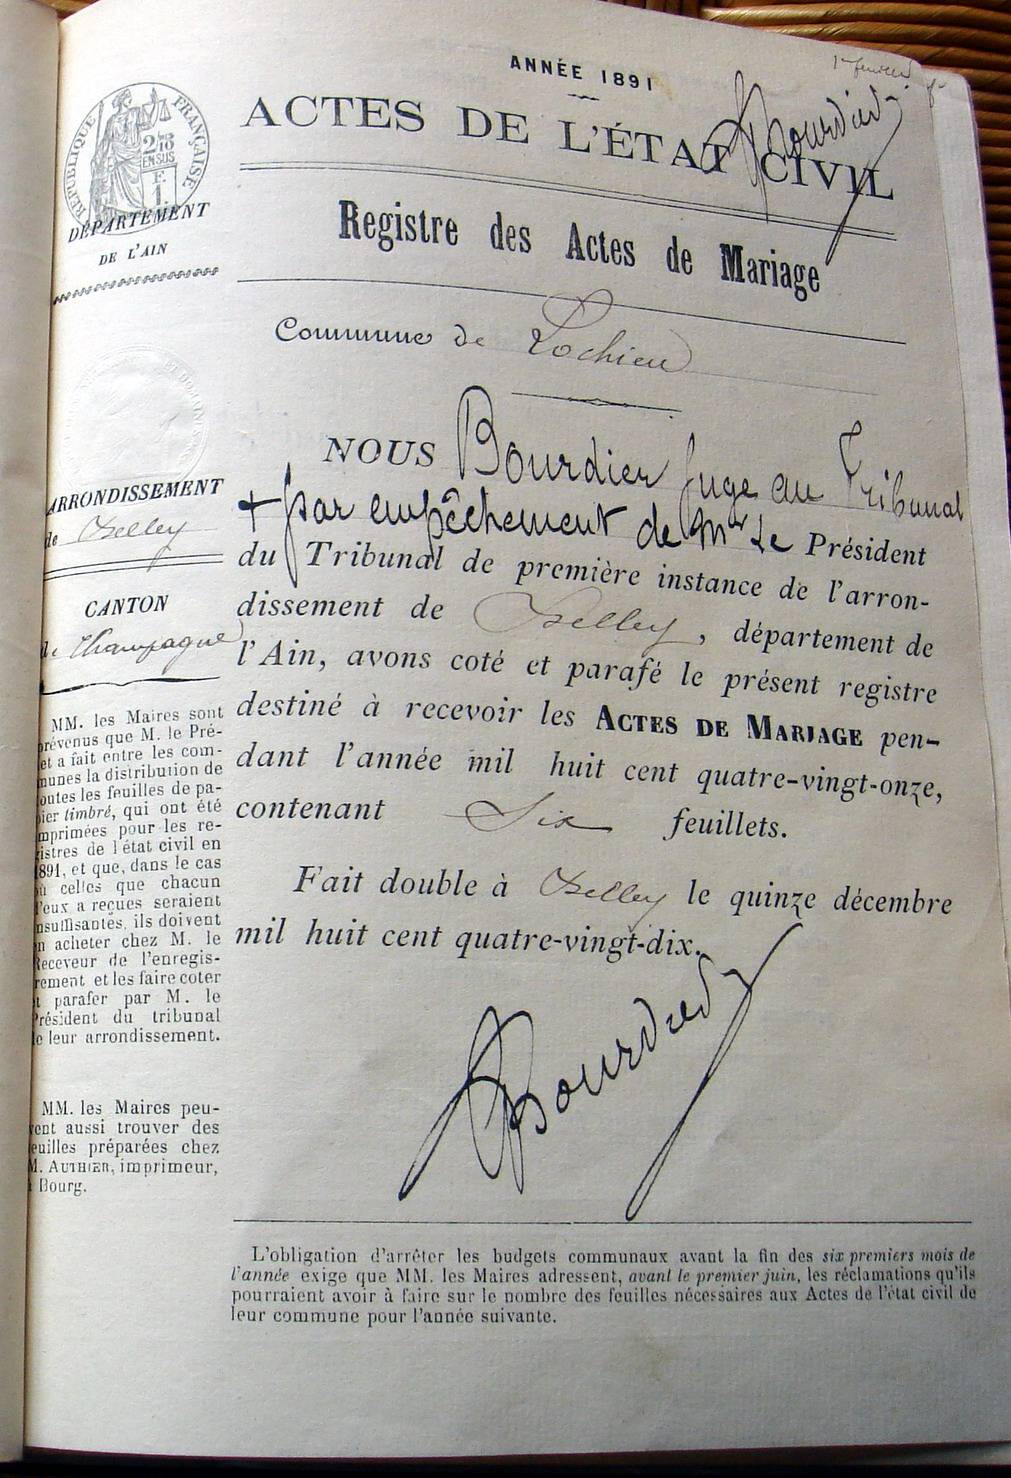 ANNÉE 1891
1er feuillet
Bourdier
ACTES DE L'ÉTAT CIVIL
RÉPUBLIQUE FRANÇAISE
2/10
EN SUS
F.
1.
DÉPARTEMENT
DE L'AIN
Registre des Actes de Mariage
Commune de Lochieu
ARRONDISSEMENT
de Belley
CANTON
de Champagne
MM. les Maires sont
prévenus que M. le Pré-
et a fait entre les com-
munes la distribution de
toutes les feuilles de pa-
pier timbré, qui ont été
imprimées pour les re-
gistres de l'état civil en
1891, et que, dans le cas
où celles que chacun
d'eux a reçues seraient
insuffisantes, ils doivent
en acheter chez M. le
Receveur de l'enregis-
trement et les faire coter
et parafer par M. le
Président du tribunal
de leur arrondissement.
MM. les Maires peu-
vent aussi trouver des
feuilles préparées chez
M. AUTHIER, imprimeur,
à Bourg.
NOUS Bourdier Juge au Tribunal
+ par empêchement de Mr Le Président
du Tribunal de première instance de l'arron-
dissement de Belley, département de
l'Ain, avons coté et parafé le présent registre
destiné à recevoir les ACTES DE MARIAGE pen-
dant l'année mil huit cent quatre-vingt-onze,
contenant Six feuillets.
Fait double à Belley le quinze décembre
mil huit cent quatre-vingt-dix.
Bourdier
L'obligation d'arrêter les budgets communaux avant la fin des six premiers mois de
l'année exige que MM. les Maires adressent, avant le premier juin, les réclamations qu'ils
pourraient avoir à faire sur le nombre des feuilles nécessaires aux Actes de l'état civil de
leur commune pour l'année suivante.